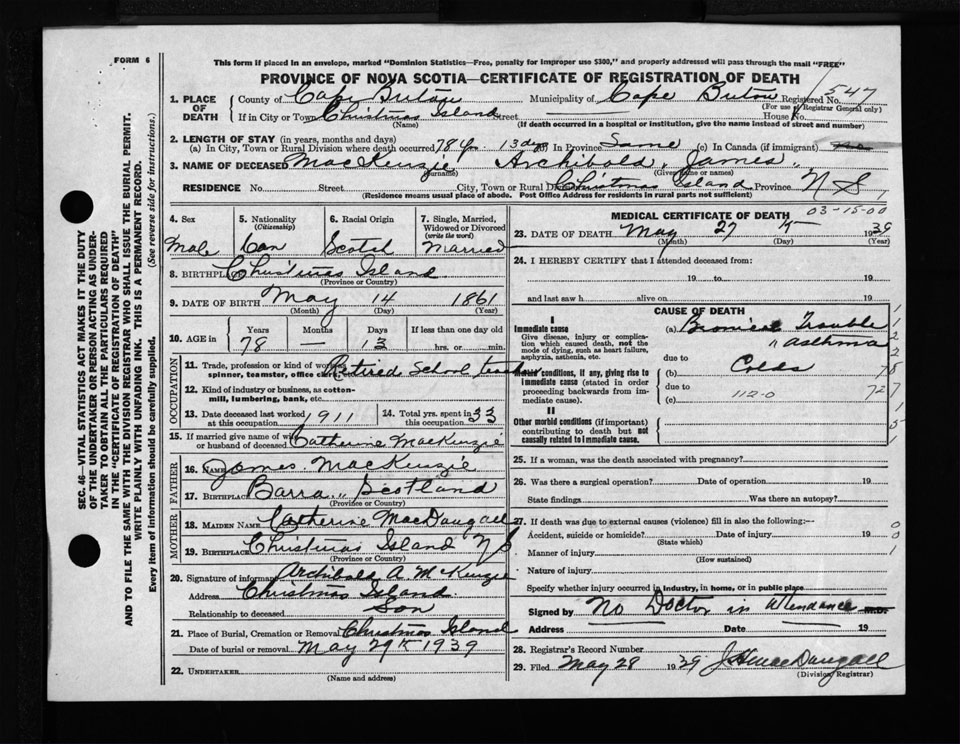 FORM 6
This form if placed in an envelope, marked "Dominion Statistics—Free, penalty for improper use $300," and properly addressed will pass through the mail "FREE"
PROVINCE OF NOVA SCOTIA—CERTIFICATE OF REGISTRATION OF DEATH
1. PLACE OF DEATH
County of Cape Breton Municipality of Cape Breton Registered No. 547
(For use of Registrar General only)
If in City or Town Christmas Island Street House No.
(Name) (If death occurred in a hospital or institution, give the name instead of street and number)
2. LENGTH OF STAY (in years, months and days)
(a) In City, Town or Rural Division where death occurred 78 yr. 13 dys (b) In Province Same (c) In Canada (if immigrant)
3. NAME OF DECEASED MacKenzie Archibald James
(Surname) (Given name or names)
RESIDENCE No. Street City, Town or Rural Div. Christmas Island Province N S
(Residence means usual place of abode. Post Office Address for residents in rural parts not sufficient)
4. Sex
Male
5. Nationality
(Citizenship)
Can
6. Racial Origin
Scotch
7. Single, Married, Widowed or Divorced
(write the word)
Married
8. BIRTHPLACE Christmas Island
(Province or Country)
9. DATE OF BIRTH May 14 1861
(Month) (Day) (Year)
10. AGE in
Years Months Days If less than one day old
78 — 13 hrs. or min.
OCCUPATION
11. Trade, profession or kind of work as spinner, teamster, office clerk, etc. Retired School teacher
12. Kind of industry or business, as cotton-mill, lumbering, bank, etc.
13. Date deceased last worked at this occupation 1911
14. Total yrs. spent in this occupation 33
15. If married give name of wife or husband of deceased Catherine MacKenzie
FATHER
16. NAME James MacKenzie
17. BIRTHPLACE Barra " Scotland
(Province or Country)
MOTHER
18. MAIDEN NAME Catherine MacDougall
19. BIRTHPLACE Christmas Island N S
(Province or Country)
20. Signature of informant Archibald A McKenzie
Address Christmas Island
Relationship to deceased Son
21. Place of Burial, Cremation or Removal Christmas Island
Date of burial or removal May 29th 1939
22. UNDERTAKER
(Name and address)
MEDICAL CERTIFICATE OF DEATH
03-15-00
23. DATE OF DEATH May 27th 1939
(Month) (Day) (Year)
24. I HEREBY CERTIFY that I attended deceased from:
19 to 19
and last saw h alive on 19
CAUSE OF DEATH
I
Immediate cause
Give disease, injury or complication which caused death, not the mode of dying, such as heart failure, asphyxia, asthenia, etc.
(a) Bronical Trouble
" asthma
due to
Morbid conditions, if any, giving rise to immediate cause (stated in order proceeding backwards from immediate cause).
(b) Colds
due to
(c) 112-0
II
Other morbid conditions (if important) contributing to death but not causally related to immediate cause.
25. If a woman, was the death associated with pregnancy?
26. Was there a surgical operation? Date of operation 19
State findings Was there an autopsy?
27. If death was due to external causes (violence) fill in also the following:—
Accident, suicide or homicide? Date of injury 19
(State which)
Manner of injury
(How sustained)
Nature of injury
Specify whether injury occurred in industry, in home, or in public place
Signed by No Doctor in attendance M.D.
Address Date 19
28. Registrar's Record Number
29. Filed May 28 1939
(Division Registrar)
SEC. 46—VITAL STATISTICS ACT MAKES IT THE DUTY
OF THE UNDERTAKER OR PERSON ACTING AS UNDER-
TAKER TO OBTAIN ALL THE PARTICULARS REQUIRED
IN THE "CERTIFICATE OF REGISTRATION OF DEATH"
AND TO FILE THE SAME WITH THE DIVISION REGISTRAR WHO SHALL ISSUE THE BURIAL PERMIT.
WRITE PLAINLY WITH UNFADING INK. THIS IS A PERMANENT RECORD.
Every item of information should be carefully supplied. (See reverse side for instructions.)